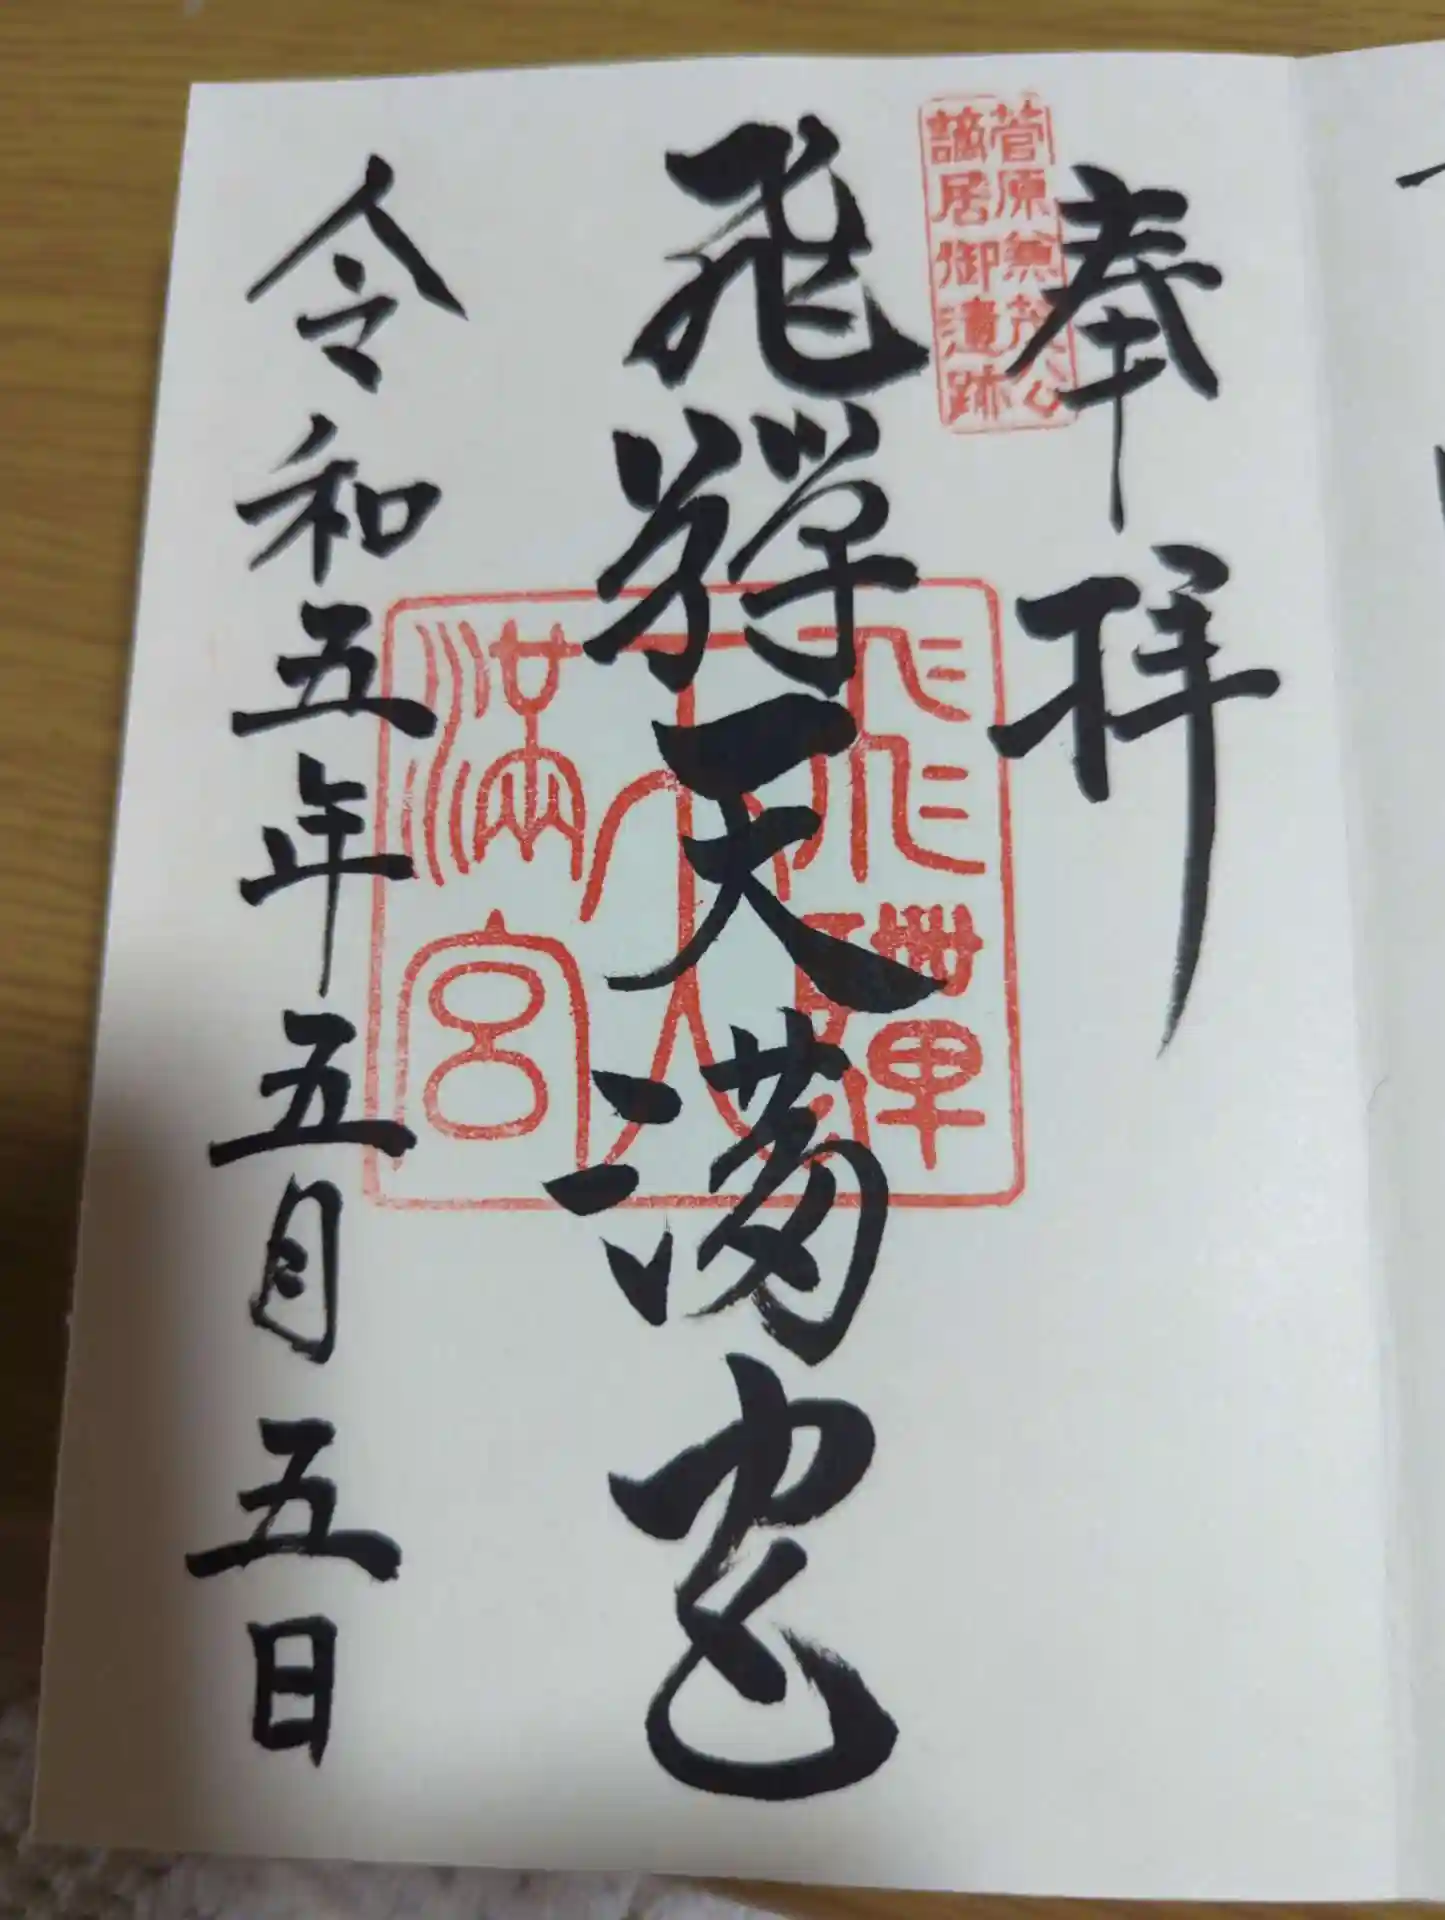 奉拝
菅原兼茂公
謫居御遺跡
飛騨天満宮
飛騨天満宮
令和五年五月五日